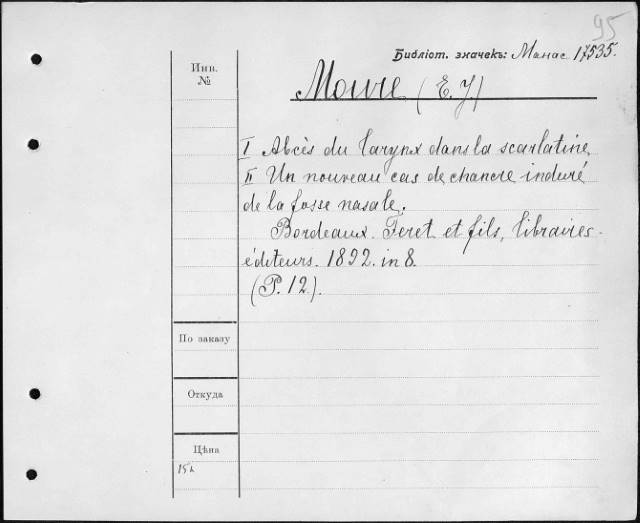 95
Библіот. значекъ: Манас 17535.
Инв.
№
Moure (E. J.)
I Abcès du larynx dans la scarlatine.
II Un nouveau cas de chancre induré
de la fosse nasale.
Bordeaux. Feret et fils, libraires-
éditeurs. 1892. in 8.
(P. 12).
По заказу
Откуда
Цѣна
15 к